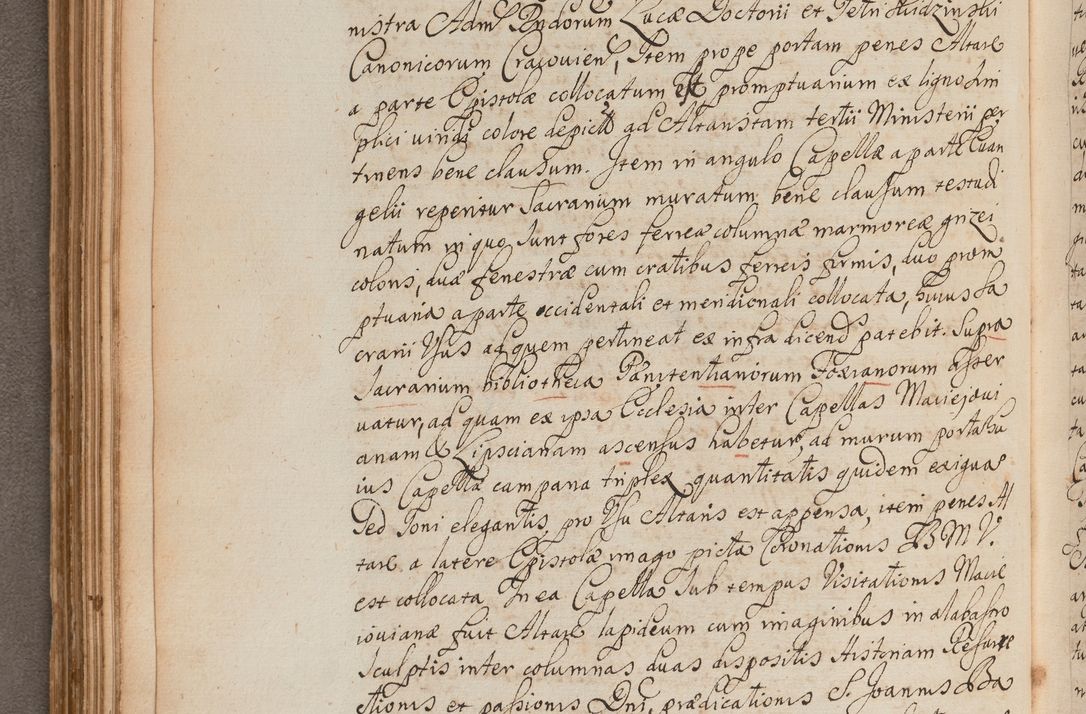 nistra Adm. Rndorum Lucæ Doctorii et Petri Hidzinski
Canonicorum Cracovien, Item prope portam penes Altare
a parte Epistolæ collocatum est promptuarium ex ligno sim
plici viridi colore depicto ad Altaristam tertii Ministerii per
tinens bene clausum. Item in angulo Capellæ a parte Evan
gelii reperitur Sacrarium muratum bene clausum testudi
natum in quo sunt fores ferreæ columnæ marmoreæ grizei
coloris, duæ fenestræ cum cratibus ferreis firmis, duo prom
ptuaria a parte occidentali et meridionali collocata, huius Sa
crarii Usus ad quem pertineat ex infra dicend patebit. Supra
Sacrarium bibliotheca Pœnitentianorum Foxianorum asser
vatur, ad quam ex ipsa Ecclesia inter Capellas Maciejovi
anam & Lipscianam ascensus habetur, ad murum porta hu
ius Capellæ campana triplex quantitatis quidem exiguæ
sed soni elegantis, pro Usu Altaris est appensa, item penes Al
tare a latere Epistolæ imago picta Coronationis B M V.
est collocata In ea Capella sub tempus Visitationis Macie
iovianæ fuit Altare lapideum cum imaginibus in alabastro
sculptis inter columnas duas dispositis Historiam Resurre
ctionis et passionis Dni, prædicationis S. Joannis Ba